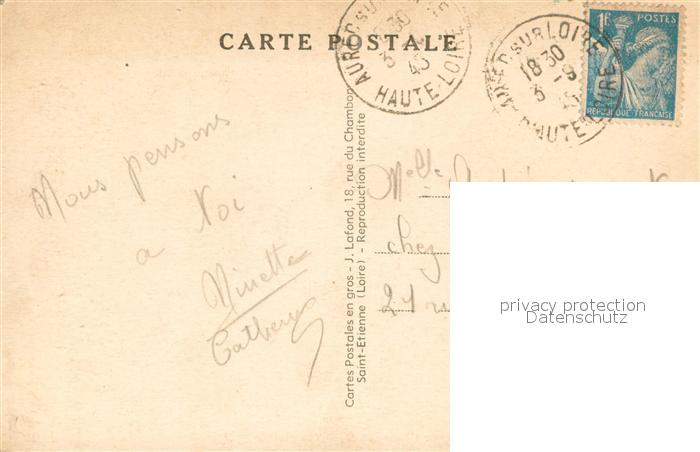 CARTE POSTALE
AUREC SUR LOIRE
18 30
3 -9
45
HAUTE-LOIRE
AUREC SUR LOIRE
18 30
3 -9
45
HAUTE-LOIRE
1F
POSTES
REPUBLIQUE FRANCAISE
Nous pensons
a toi
Ninette
Cartes Postales en gros - J. Lafond, 18, rue du Chambon
Saint-Etienne (Loire) - Reproduction interdite
Melle
chez
21 ru
privacy protection
Datenschutz